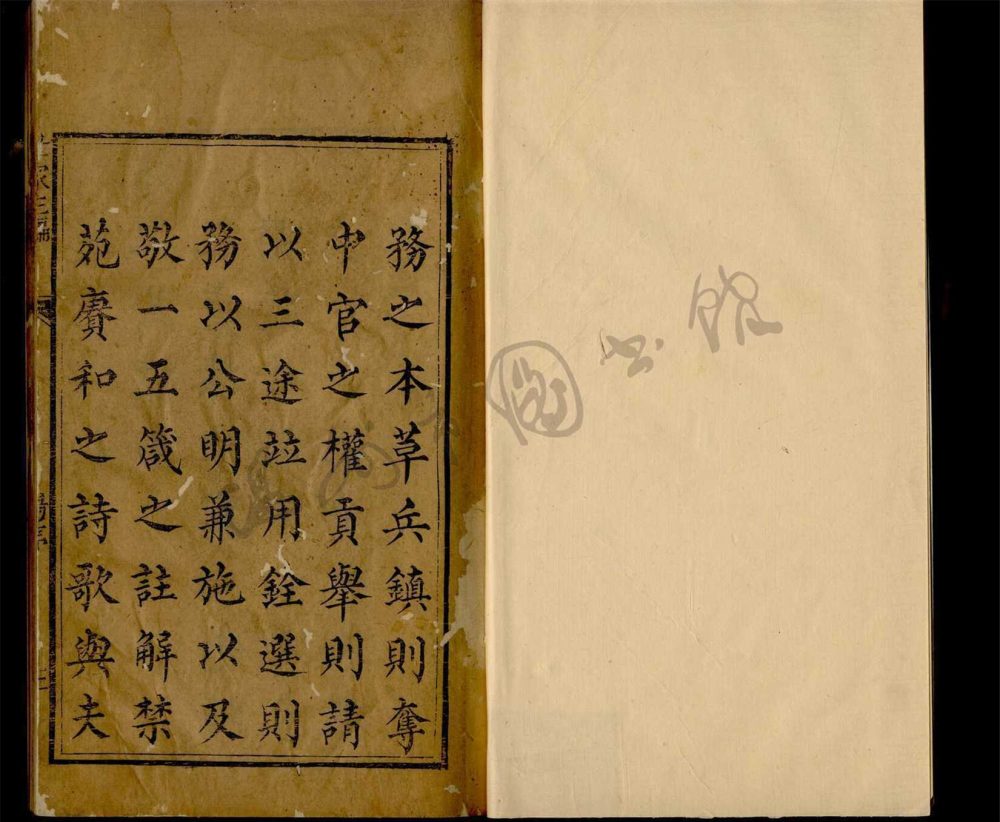 務之本草兵鎮則奪
中官之權貢舉則請
以三途竝用銓選則
務以公明兼施以及
敬一五箴之註解禁
苑賡和之詩歌與夫